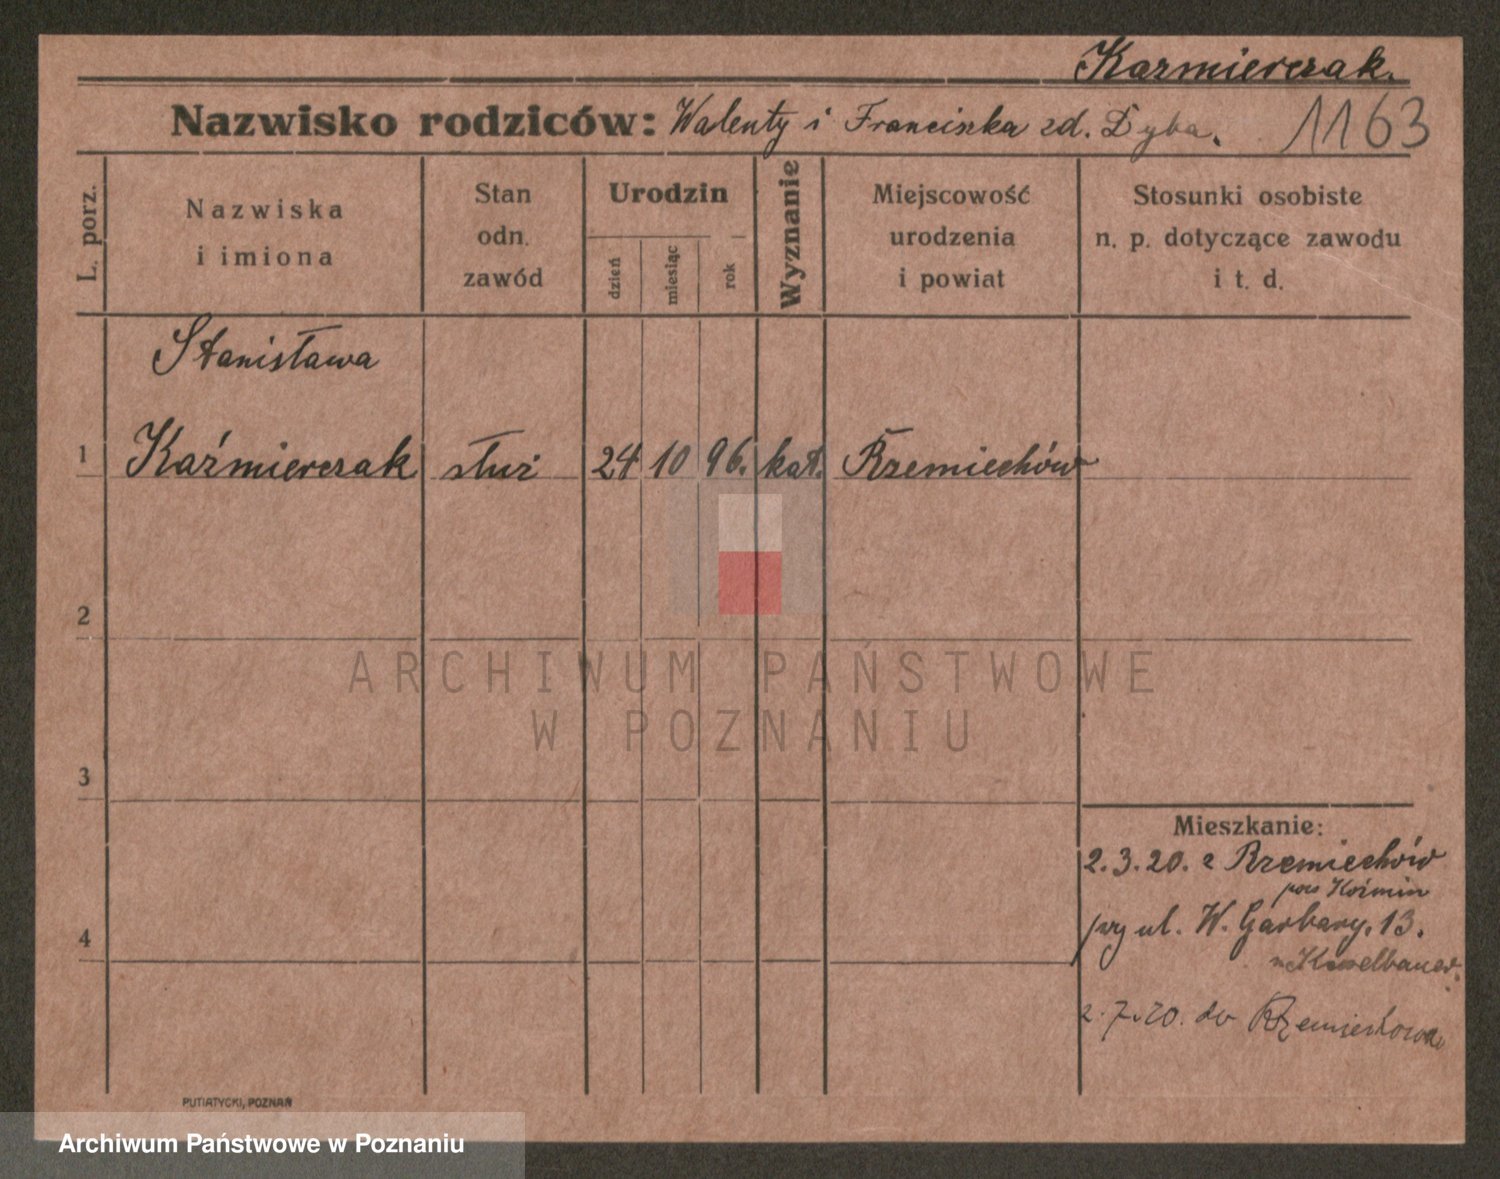 Kaźmierczak.
Nazwisko rodziców: Walenty i Franciszka zd. Dyba. 1163
L. porz.
Nazwiska
i imiona
Stan
odn.
zawód
Urodzin
dzień
miesiąc
rok
Wyznanie
Miejscowość
urodzenia
i powiat
Stosunki osobiste
n. p. dotyczące zawodu
i t. d.
Stanisława
1 Kaźmierczak służ 24 10 96. kat. Rzemiechów
2
3
4
Mieszkanie:
2.3.20. z Rzemiechów
pow Koźmin
przy ul. W. Garbary. 13.
2.7.20. do Rzemiechowa
PUTIATYCKI, POZNAŃ
ARCHIWUM PAŃSTWOWE
W POZNANIU
Archiwum Państwowe w Poznaniu